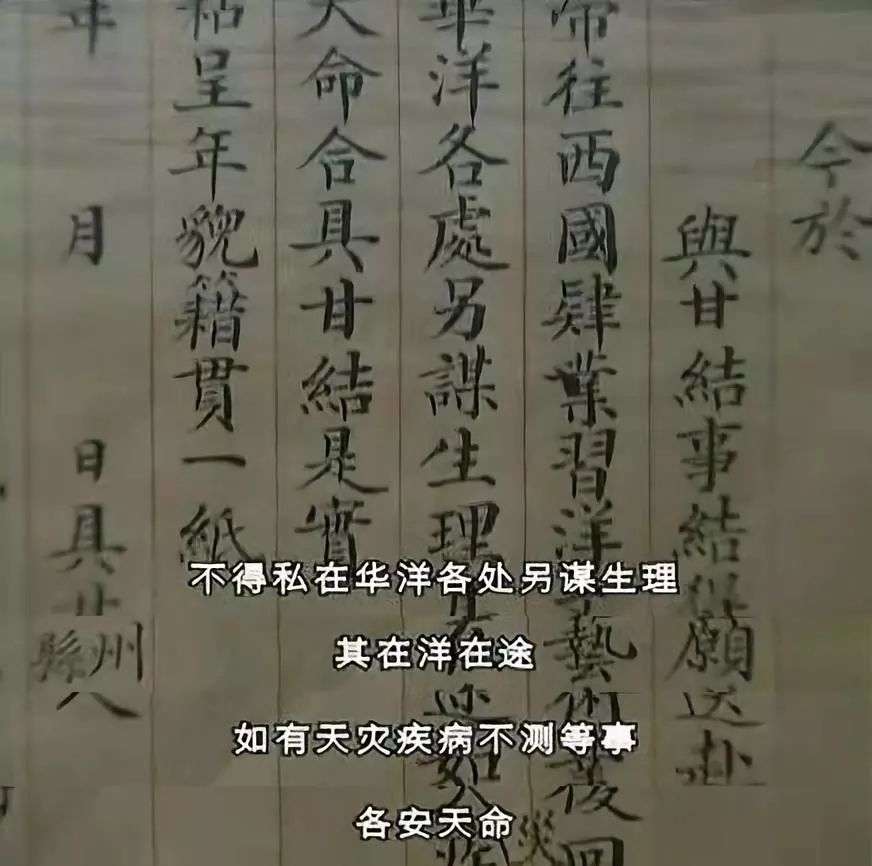 今於
與甘結事結得願送赴
帝往西國肄業習洋藝術後回
華洋各處另謀生理在途如天災
天命合具甘結是實
粘呈年貌籍貫一紙
年月日具甘
縣州人
不得私在华洋各处另谋生理
其在洋在途
如有天灾疾病不测等事
各安天命